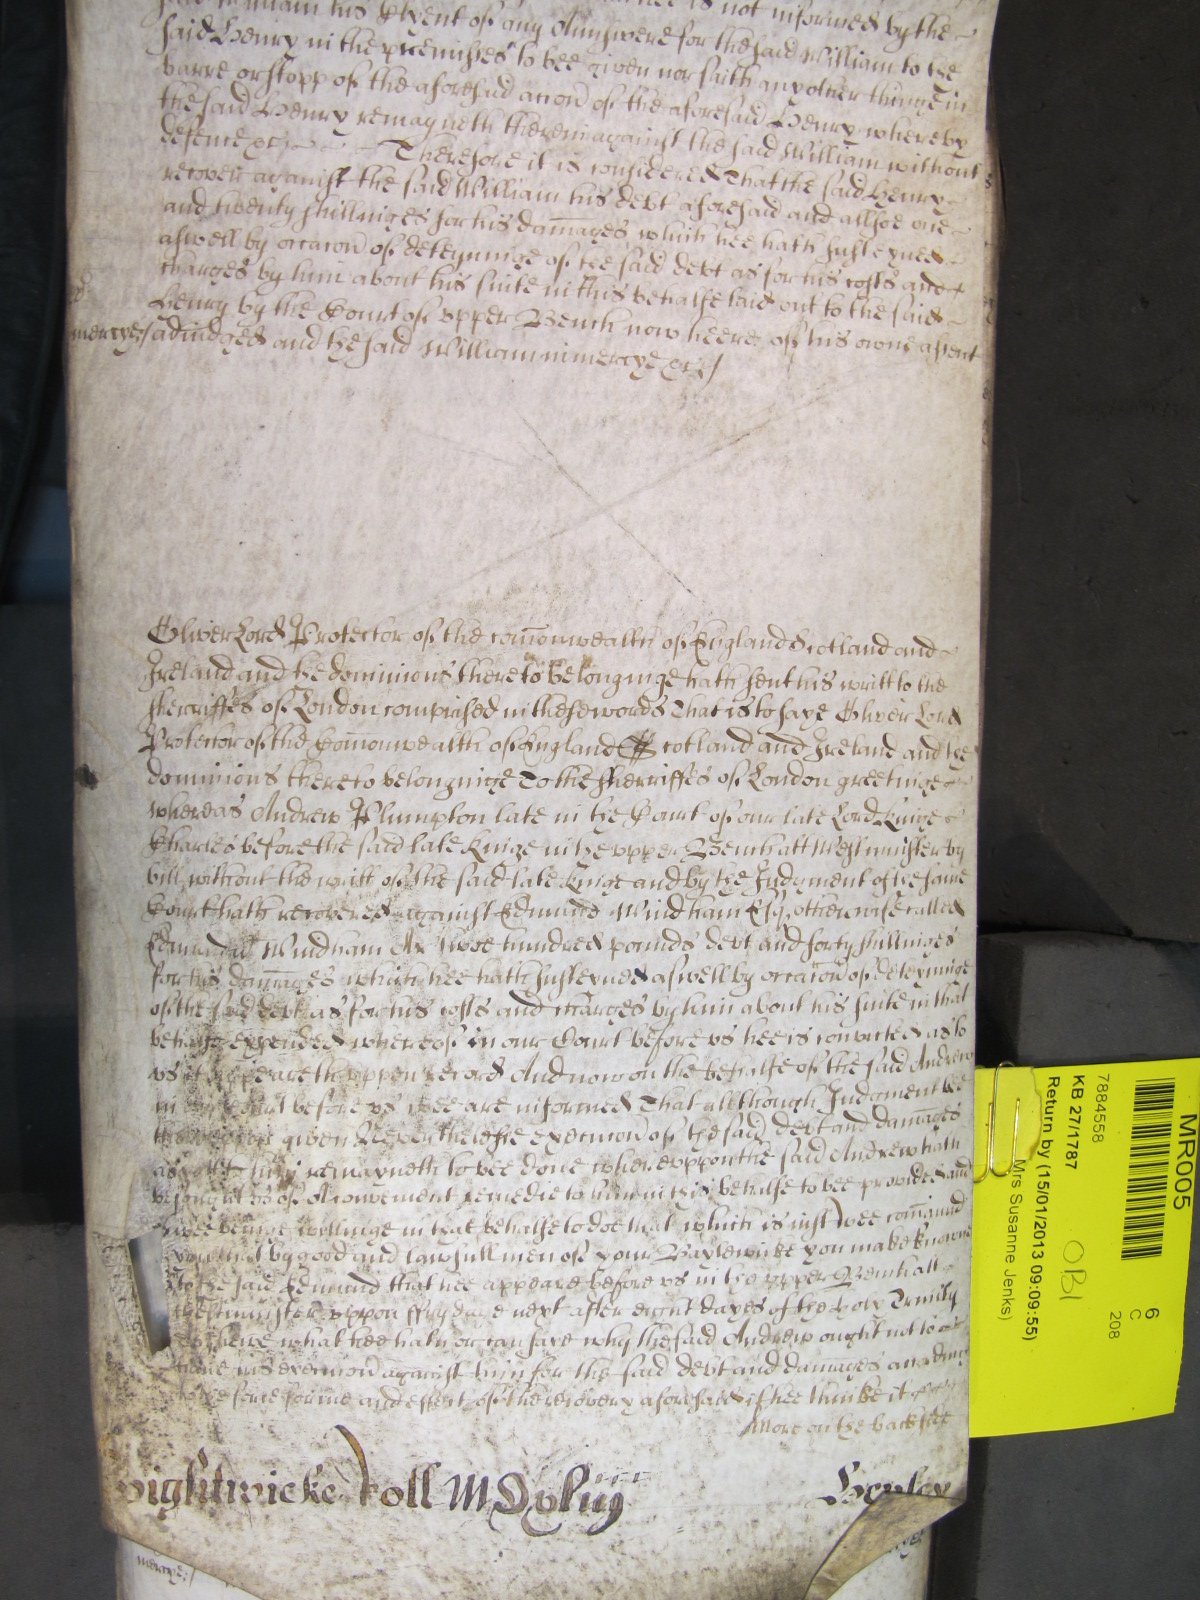 said William his Clyent of any Answere for the said William to the
said Henry in the premisses to bee given nor saith any other thinge in
barre or stopp of the aforesaid accion of the aforesaid Henry whereby
the said Henry remayneth therein against the said William without
defence &c Therefore it is considered That the said Henry
recover against the said William his debt aforesaid and allsoe one
and twenty shillinges for his damages which hee hath susteyned
aswell by occacion of deteyninge of the said debt as for his costs and
charges by him about his suite in this behalfe laid out to the said
Henry by the Court of upper Bench now heere of his owne assent
mercye adiudged and the said William in mercye &c
Oliver Lord Protector of the comonwealth of England Scotland and
Ireland and the dominions thereto belonginge hath sent his writt to the
sherriffes of London comprised in these words That is to saye Oliver Lord
Protector of the Comonwealth of England Scotland and Ireland and the
dominions thereto belonginge To the sherriffes of London greetinge
whereas Andrew Plumpton late in the Court of our late Lord Kinge
Charles before the said late Kinge in the upper Bench att Westminster by
bill without the writt of the said late Kinge and by the Judgment of the same
Court hath recovered against Edmund Windham Esq otherwise called
Edmund Windham hundred pounds debt and forty shillinges
for his damages which hee hath susteyned aswell by occacion of deteyninge
of the said debt as for his costs and charges by him about his suite in that
behalfe expended whereof in our Court before us hee is convicted as to
us it appeareth uppon record And now on the behalfe of the said Andrew
in our Court before us wee are informed That allthough Judgment bee
given Neverthelesse execucion of the said debt and damages
remayneth to bee done whereuppon the said Andrew hath
besought us of a convenient remedie to him in this behalfe to bee provided and
wee beinge willinge in that behalfe to doe that which is iust wee comaund
you that by good and lawfull men of your Baylewicke you make knowne
to the said Edmund that hee appeare before us in the upper Bench att
Westminster uppon ffrydaie next after eight dayes of the holy Trinity
to shewe what hee hath or can saye why the said Andrew ought not to
have his execucion against him for the said debt and damages accordinge
to the force forme and effect of the recovery aforesaid if hee thinke it
More on the backside
Wightwicke Roll M D xlviij
Henley
mercye
MR005
6
C
208
7884558
KB 27/1787
OBI
Return by (15/01/2013 09:09:55)
Mrs Susanne Jenks)